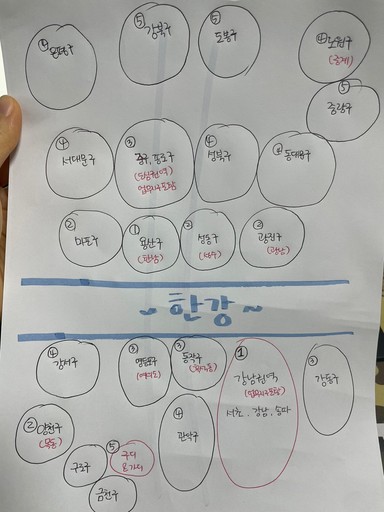 ④ 은평구
⑤ 강북구
⑤ 도봉구
④ 노원구
(중계)
⑤ 중랑구
④ 서대문구
③ 중구, 종로구
(도심권역
업무지구포함)
④ 성북구
④ 동대문구
② 마포구
① 용산구
(한남)
② 성동구
(성수)
② 광진구
(광남)
~ 한강 ~
④ 강서구
③ 영등포구
(여의도)
③ 동작구
① 강남권역
(업무지구포함)
서초, 강남, 송파
③ 강동구
② 양천구
(목동)
④ 관악구
구로구
⑤ 구디
&가디
금천구